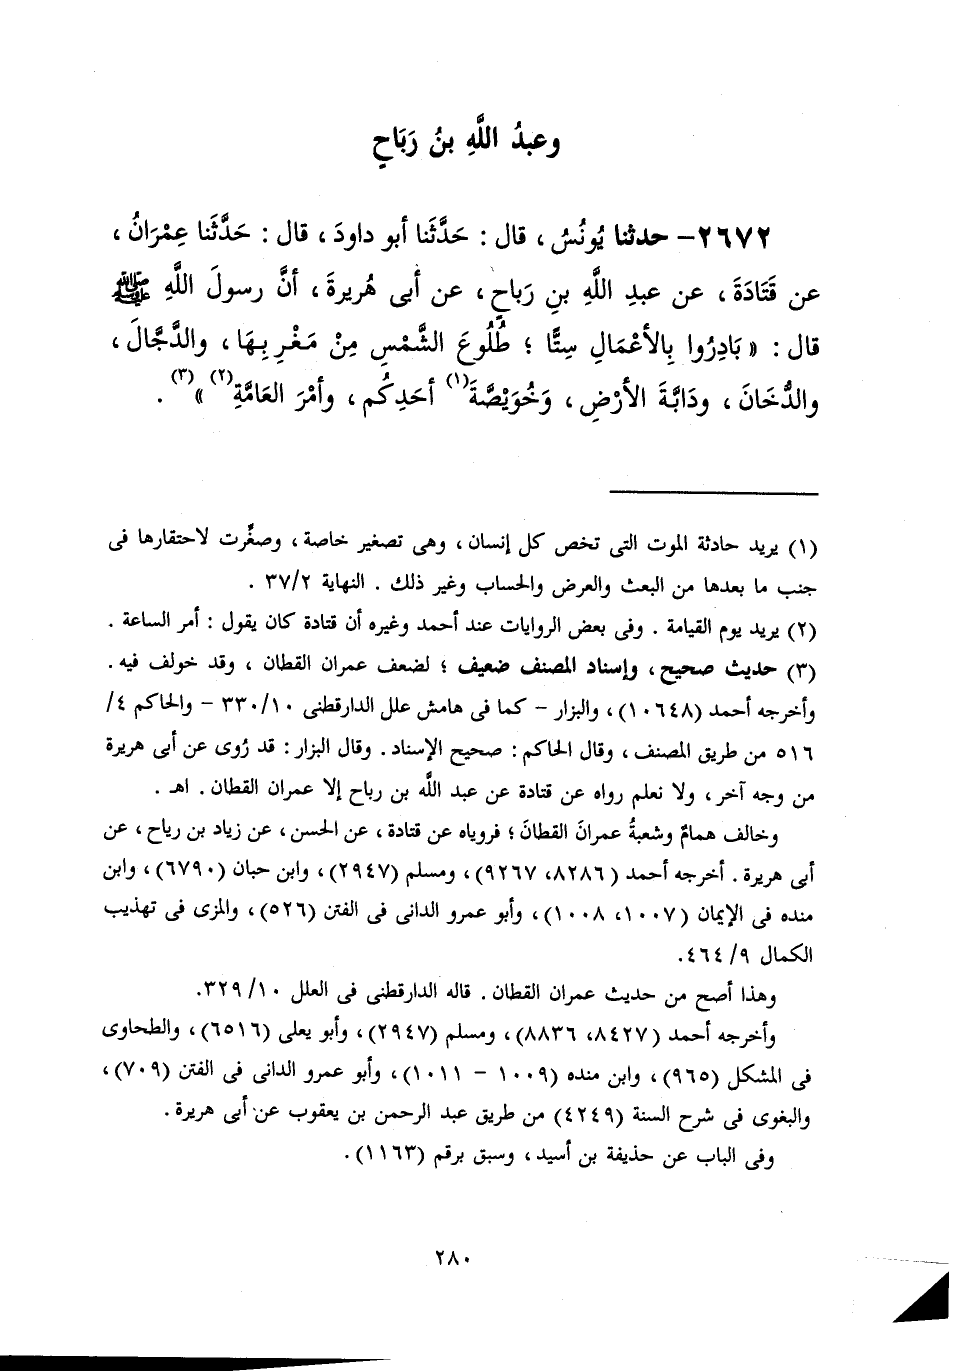 وعبدُ اللَّهِ بنُ رَبَاحٍ
٢٦٧٢- حدثنا يُونُسُ ، قال : حَدَّثَنا أبو داودَ ، قال : حَدَّثَنا عِمْرَانُ ،
عن قَتَادَةَ ، عن عبدِ اللَّهِ بنِ رَباحٍ ، عن أبى هُريرةَ ، أنَّ رسولَ اللَّهِ ﷺ
قال : « بَادِرُوا بِالأعْمَالِ سِتًّا ؛ طُلُوعَ الشَّمْسِ مِنْ مَغْرِبِهَا ، والدَّجَّالَ ،
والدُّخَانَ ، ودَابَّةَ الأرْضِ ، وَخُوَيْصَّةَ(١) أحَدِكُم ، وأمْرَ العَامَّةِ(٢) »(٣) .
(١) يريد حادثة الموت التى تخص كل إنسان ، وهى تصغير خاصة ، وصغِّرت لاحتقارها فى
جنب ما بعدها من البعث والعرض والحساب وغير ذلك . النهاية ٣٧/٢ .
(٢) يريد يوم القيامة . وفى بعض الروايات عند أحمد وغيره أن قتادة كان يقول : أمر الساعة .
(٣) حديث صحيح ، وإسناد المصنف ضعيف ؛ لضعف عمران القطان ، وقد خولف فيه .
وأخرجه أحمد (١٠٦٤٨) ، والبزار - كما فى هامش علل الدارقطنى ٣٣٠/١٠ - والحاكم ٤/
٥١٦ من طريق المصنف ، وقال الحاكم : صحيح الإسناد . وقال البزار : قد رُوى عن أبى هريرة
من وجه آخر ، ولا نعلم رواه عن قتادة عن عبد اللَّه بن رباح إلا عمران القطان . اهـ .
وخالف همامٌ وشعبةُ عمرانَ القطانَ ؛ فروياه عن قتادة ، عن الحسن ، عن زياد بن رياح ، عن
أبى هريرة . أخرجه أحمد (٨٢٨٦، ٩٢٦٧) ، ومسلم (٢٩٤٧) ، وابن حبان (٦٧٩٠) ، وابن
منده فى الإيمان (١٠٠٧، ١٠٠٨) ، وأبو عمرو الدانى فى الفتن (٥٢٦) ، والمزى فى تهذيب
الكمال ٤٦٤/٩.
وهذا أصح من حديث عمران القطان . قاله الدارقطنى فى العلل ٣٢٩/١٠.
وأخرجه أحمد (٨٤٢٧، ٨٨٣٦) ، ومسلم (٢٩٤٧) ، وأبو يعلى (٦٥١٦) ، والطحاوى
فى المشكل (٩٦٥) ، وابن منده (١٠٠٩ - ١٠١١) ، وأبو عمرو الدانى فى الفتن (٧٠٩) ،
والبغوى فى شرح السنة (٤٢٤٩) من طريق عبد الرحمن بن يعقوب عن أبى هريرة .
وفى الباب عن حذيفة بن أسيد ، وسبق برقم (١١٦٣) .
٢٨٠